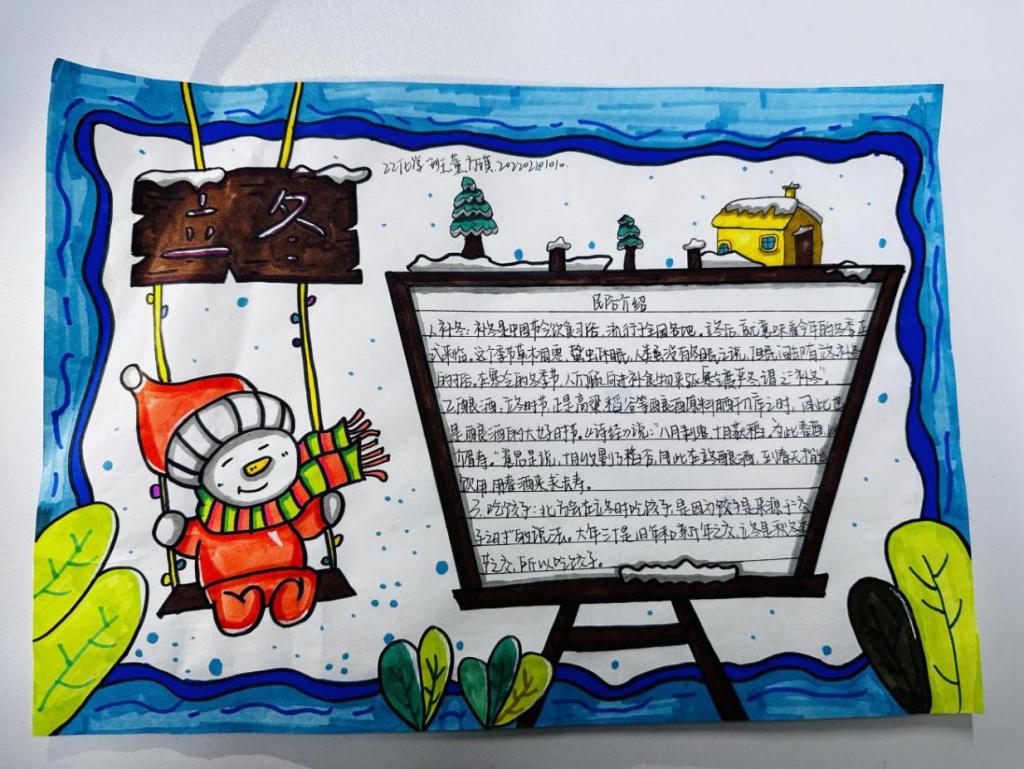 22化学班 董 202202101010.
立冬
民俗介绍
1.补冬：补冬是中国节令饮食习俗，流行于全国各地。立冬后，就意味着今年的冬季正
式来临。这个季节草木凋零，蛰虫休眠，人类虽没有冬眠之说，但民间却有立冬补冬
的习俗，在寒冷的冬季节，人们 进补食物来
2.酿酒，立冬时节，正是高粱稻谷等酿酒原料晒干入库之时，因此也
是酿酒的大好时节。《诗经》说："八月剥枣，十月获稻，为此春酒，以
介眉寿。"意思是说，十月收割了稻谷，因此在立冬酿酒，到春天
饮用，用春酒来求长寿。
3.吃饺子：北方会在立冬时吃饺子，是因为饺子是来源于"交
子之时"的说法。大年三十是旧年和新年之交，立冬是秋冬季
节之交，所以吃饺子。